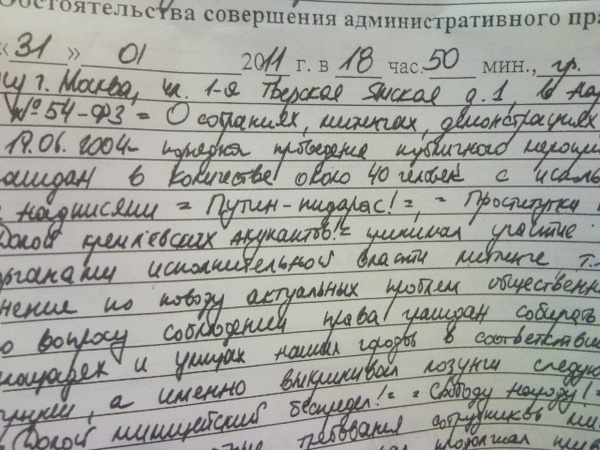 Обстоятельства совершения административного пра
«31» 01 2011 г. в 18 час. 50 мин., гр.
г. Москва, ул. 1-я Тверская Ямская д. 1, в на
№ 54-ФЗ = О собраниях, митингах, демонстрациях
19.06.2004 порядка проведения публичного меропри
граждан в количестве около 40 человек с исполь
с надписями = Путин-пидарас! =, = Проститутки
Долой кремлевских оккупантов! = принимал участие
органами исполнительной власти митинге т.
нение по поводу актуальных проблем общественно
о вопросу соблюдении права граждан собирать
площадях и улицах наших городов в соответствии
туции, а именно выкрикивал лозунги следую
= Долой милицейский беспредел! = = Свободу народу! =
требования сотрудников ми
продолжал